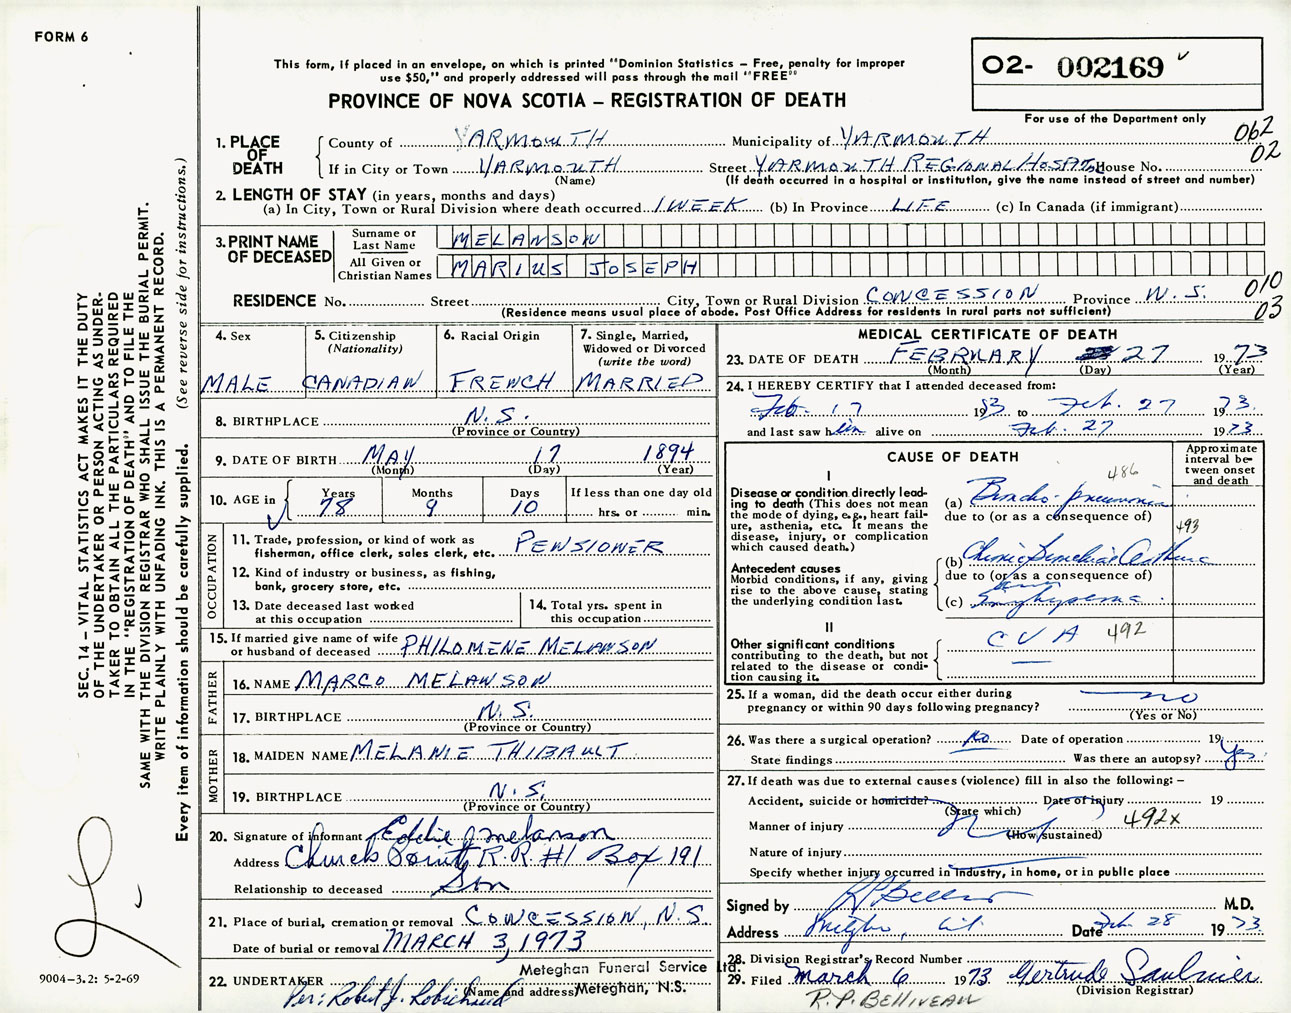 FORM 6
This form, if placed in an envelope, on which is printed "Dominion Statistics – Free, penalty for improper
use $50," and properly addressed will pass through the mail "FREE"
PROVINCE OF NOVA SCOTIA – REGISTRATION OF DEATH
O2- 002169
For use of the Department only
062
02
1. PLACE OF DEATH
County of YARMOUTH Municipality of YARMOUTH
If in City or Town YARMOUTH Street YARMOUTH REGIONAL HOSPITAL House No.
(Name) (If death occurred in a hospital or institution, give the name instead of street and number)
2. LENGTH OF STAY (in years, months and days)
(a) In City, Town or Rural Division where death occurred 1 WEEK (b) In Province LIFE (c) In Canada (if immigrant)
3. PRINT NAME OF DECEASED
Surname or Last Name MELANSON
All Given or Christian Names MARIUS JOSEPH
010
03
RESIDENCE No. Street City, Town or Rural Division CONCESSION Province N.S.
(Residence means usual place of abode. Post Office Address for residents in rural parts not sufficient)
4. Sex MALE
5. Citizenship (Nationality) CANADIAN
6. Racial Origin FRENCH
7. Single, Married, Widowed or Divorced (write the word) MARRIED
8. BIRTHPLACE N.S.
(Province or Country)
9. DATE OF BIRTH MAY 17 1894
(Month) (Day) (Year)
10. AGE in Years 78 Months 9 Days 10 If less than one day old
hrs. or min.
OCCUPATION
11. Trade, profession, or kind of work as fisherman, office clerk, sales clerk, etc. PENSIONER
12. Kind of industry or business, as fishing, bank, grocery store, etc.
13. Date deceased last worked at this occupation
14. Total yrs. spent in this occupation
15. If married give name of wife or husband of deceased PHILOMENE MELANSON
FATHER
16. NAME MARCO MELANSON
17. BIRTHPLACE N.S.
(Province or Country)
MOTHER
18. MAIDEN NAME MELANIE THIBAULT
19. BIRTHPLACE N.S.
(Province or Country)
20. Signature of informant Eddie J Melanson
Address Church Point R.R #1 Box 191
Relationship to deceased Son
21. Place of burial, cremation or removal CONCESSION, N.S.
Date of burial or removal MARCH 3, 1973
22. UNDERTAKER Meteghan Funeral Service Ltd.
Per: Robert J. Robichaud (Name and address) Meteghan, N.S.
MEDICAL CERTIFICATE OF DEATH
23. DATE OF DEATH FEBRUARY 27 1973
(Month) (Day) (Year)
24. I HEREBY CERTIFY that I attended deceased from:
Feb. 17 1973 to Feb. 27 1973
and last saw him alive on Feb. 27 1973
CAUSE OF DEATH
Approximate interval between onset and death
I
Disease or condition directly leading to death (This does not mean the mode of dying, e.g., heart failure, asthenia, etc. It means the disease, injury, or complication which caused death.)
486
(a) Broncho-pneumonia
due to (or as a consequence of)
493
Antecedent causes
Morbid conditions, if any, giving rise to the above cause, stating the underlying condition last.
(b) Chronic Bronchial Asthma
due to (or as a consequence of)
and
(c) Emphysema
II
Other significant conditions
contributing to the death, but not related to the disease or condition causing it.
CVA 492
25. If a woman, did the death occur either during
pregnancy or within 90 days following pregnancy? no
(Yes or No)
26. Was there a surgical operation? No Date of operation 19
State findings Was there an autopsy? Yes
27. If death was due to external causes (violence) fill in also the following: –
Accident, suicide or homicide? Date of injury 19
(State which)
Manner of injury 492x
(How sustained)
Nature of injury
Specify whether injury occurred in industry, in home, or in public place
Signed by R P Belliveau M.D.
Address Date Feb. 28 1973
28. Division Registrar's Record Number
29. Filed March 6 1973 Gertrude Saulnier
(Division Registrar)
R.P. BELLIVEAU
SEC. 14 – VITAL STATISTICS ACT MAKES IT THE DUTY
OF THE UNDERTAKER OR PERSON ACTING AS UNDER-
TAKER TO OBTAIN ALL THE PARTICULARS REQUIRED
IN THE "REGISTRATION OF DEATH" AND TO FILE THE
SAME WITH THE DIVISION REGISTRAR WHO SHALL ISSUE THE BURIAL PERMIT.
WRITE PLAINLY WITH UNFADING INK. THIS IS A PERMANENT RECORD.
Every item of information should be carefully supplied. (See reverse side for instructions.)
9004–3.2: 5-2-69